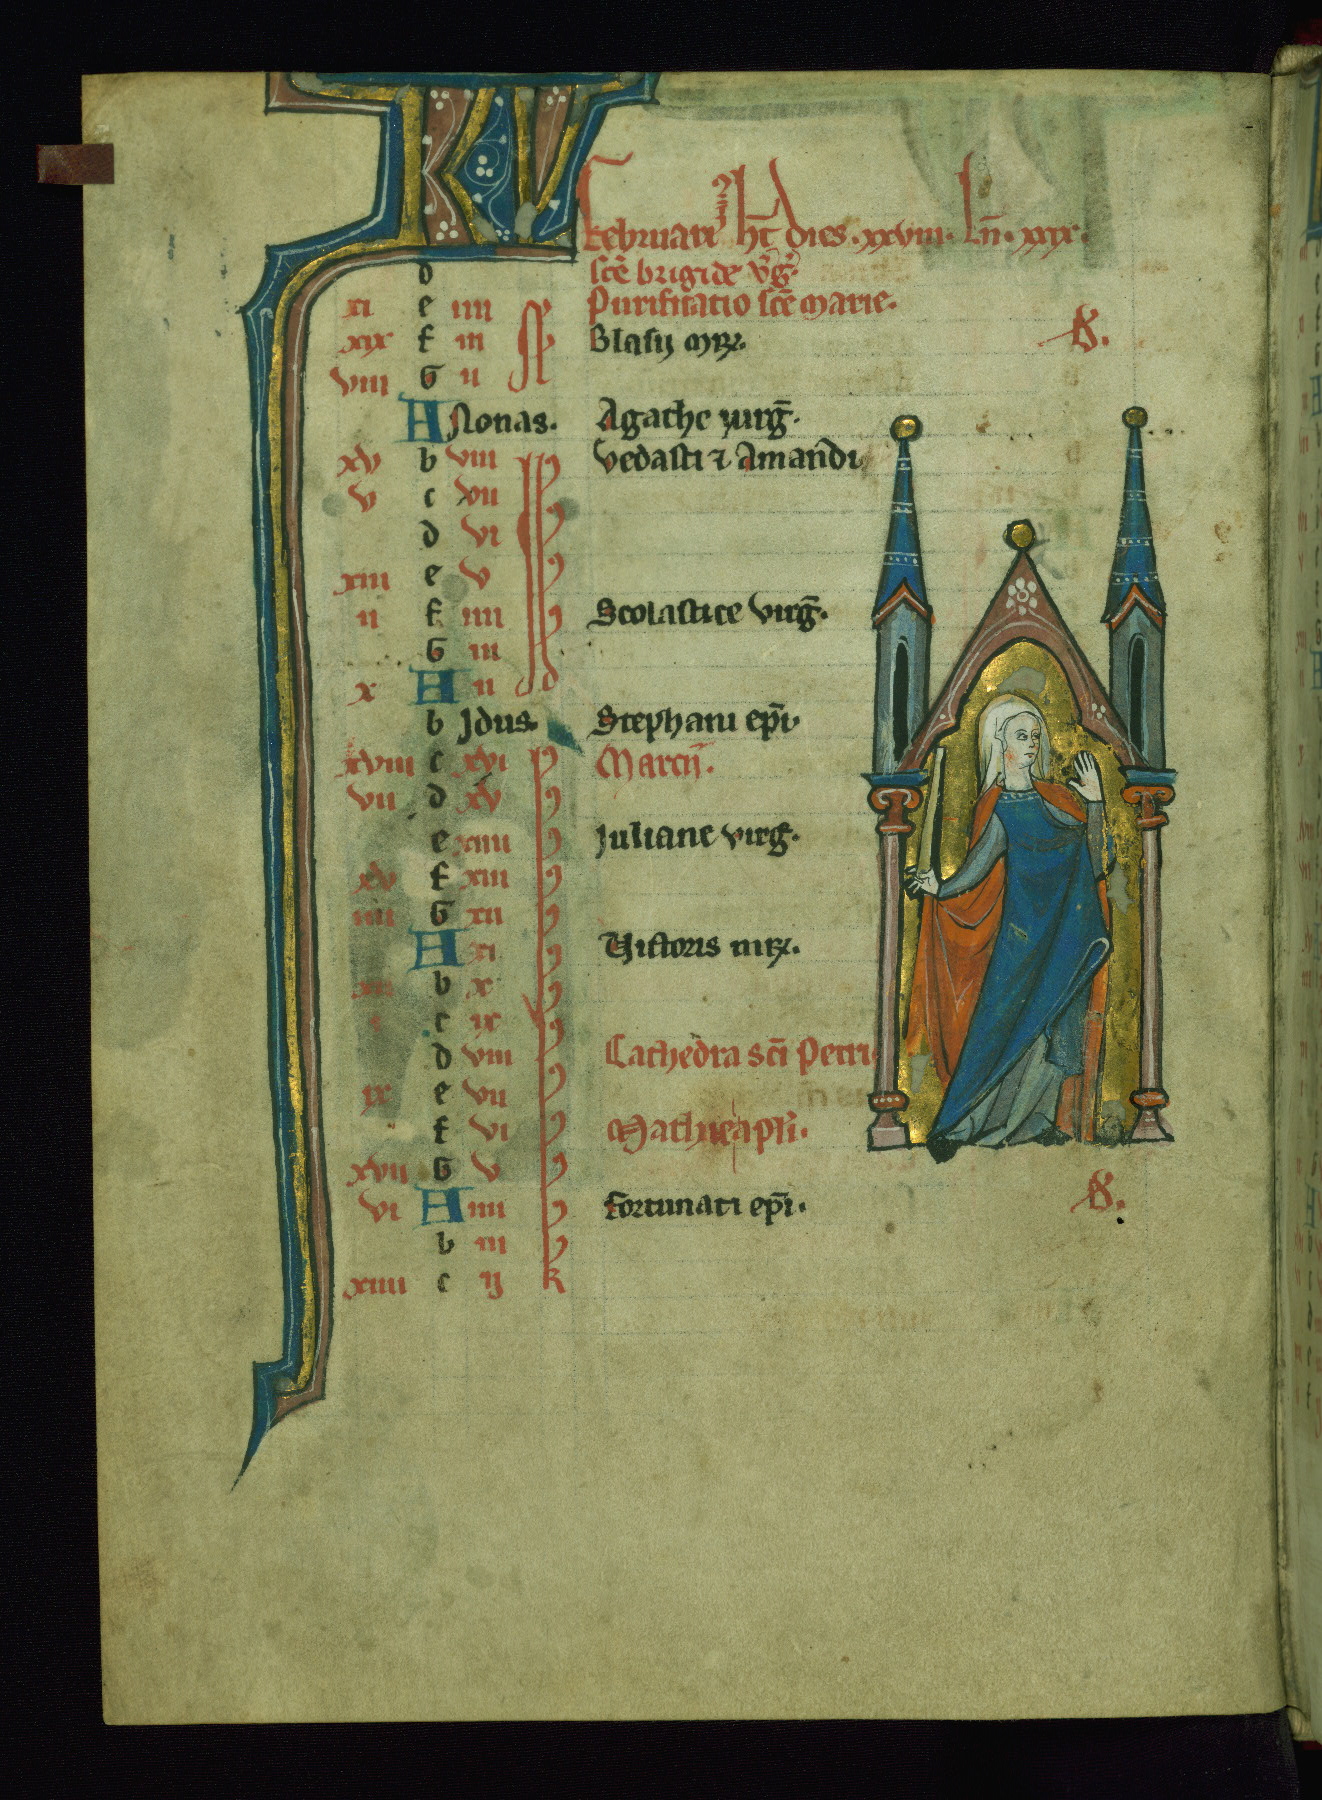 KL
Februarius ht dies. xxviii. ln. xxx.
d sce brigide vg.
xi e iiii N Purificatio sce marie.
xix f iii Blasii mr.
viii G ii
A Nonas. Agathe virg.
xv b viii Vedasti ⁊ Amandi
v c vii
d vi
xiii e v
ii f iiii Scolastice virg.
G iii
x A ii id
b Idus. Stephani epi.
xviii c xvi Marcii.
vii d xv
e xiiii Juliane virg.
xv f xiii
iiii G xii
A xi Victoris mr.
b x
c ix
d viii Cathedra sci Petri
ix e vii
f vi Mathie apli.
xvii G v
vi A iiii Fortunati epi.
b iii
xiiii c ij k